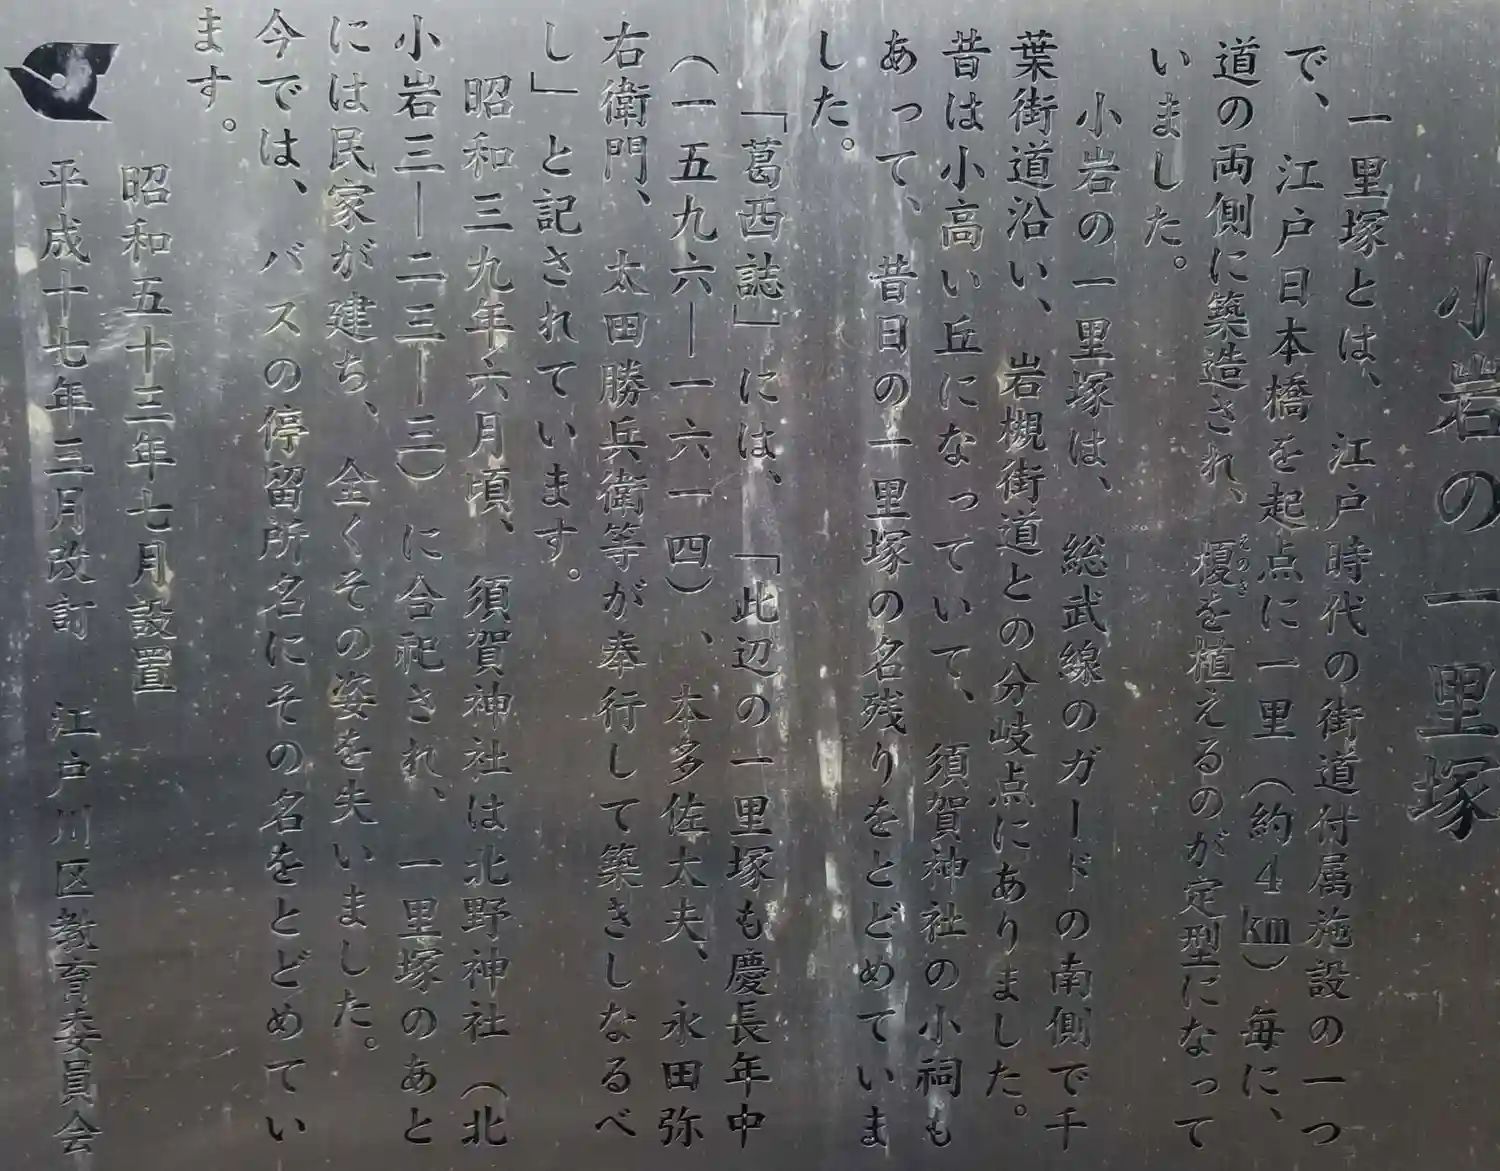 小岩の一里塚
一里塚とは、江戸時代の街道付属施設の一つ
で、江戸日本橋を起点に一里（約４㎞）毎に、
道の両側に築造され、榎を植えるのが定型になって
えのき
いました。
小岩の一里塚は、総武線のガードの南側で千
葉街道沿い、岩槻街道との分岐点にありました。
昔は小高い丘になっていて、須賀神社の小祠も
あって、昔日の一里塚の名残りをとどめていま
した。
「葛西誌」には、「此辺の一里塚も慶長年中
（一五九六―一六一四）、本多佐太夫、永田弥
右衛門、太田勝兵衛等が奉行して築きしなるべ
し」と記されています。
昭和三九年六月頃、須賀神社は北野神社（北
小岩三―二三―三）に合祀され、一里塚のあと
には民家が建ち、全くその姿を失いました。
今では、バスの停留所名にその名をとどめてい
ます。
昭和五十三年七月設置
平成十七年三月改訂　江戸川区教育委員会